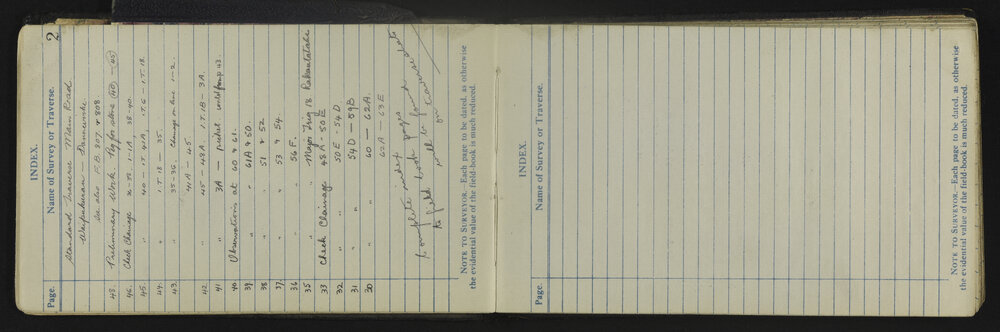 2
INDEX.
Page. Name of Survey or Traverse.
Standard Traverse Main Road
Waipukurau — Dannevirke
See also F.B. 807 & 808
48. Preliminary Work Pty for stone (40) — (45)
46. Check Chainage 36-38. 1-1A, 38-40.
45. " 40 - 1T. 41A, 1T.6 - 1T.18.
44. " 1T.18 - 35.
43. " 35-36. Chainage on line 1-2.
41A - 45
42. " 45 - 48A. 1T.1B - 3A.
41 " 3A — picket 43.
40 Observations at 60 & 61.
39. " " 61A & 50.
38 " " 51 & 52
37. " " 53 & 54
36 " " 56 F.
35 " " Major Trig 18 Rakautatahi
33 Check Chainage 48A - 50E
32 " 50E - 54D
31 " 54D - 59B
30 " 60 — 62A.
62A — 63E
Complete index pages & dates
to field book found
will be traversed
on
NOTE TO SURVEYOR.—Each page to be dated, as otherwise
the evidential value of the field-book is much reduced.
INDEX.
Page. Name of Survey or Traverse.
NOTE TO SURVEYOR.—Each page to be dated, as otherwise
the evidential value of the field-book is much reduced.